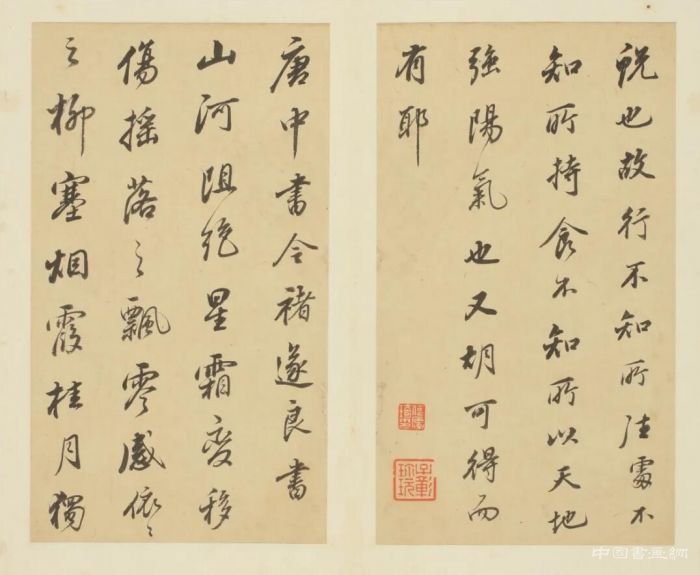 蛻也故行不知所往處不
知所持食不知所以天地
強陽氣也又胡可得而
有耶
唐中書令褚遂良書
山河阻絕星霜變移
傷搖落之飄零感依〻
之柳塞烟霞桂月獨
中国書畫網